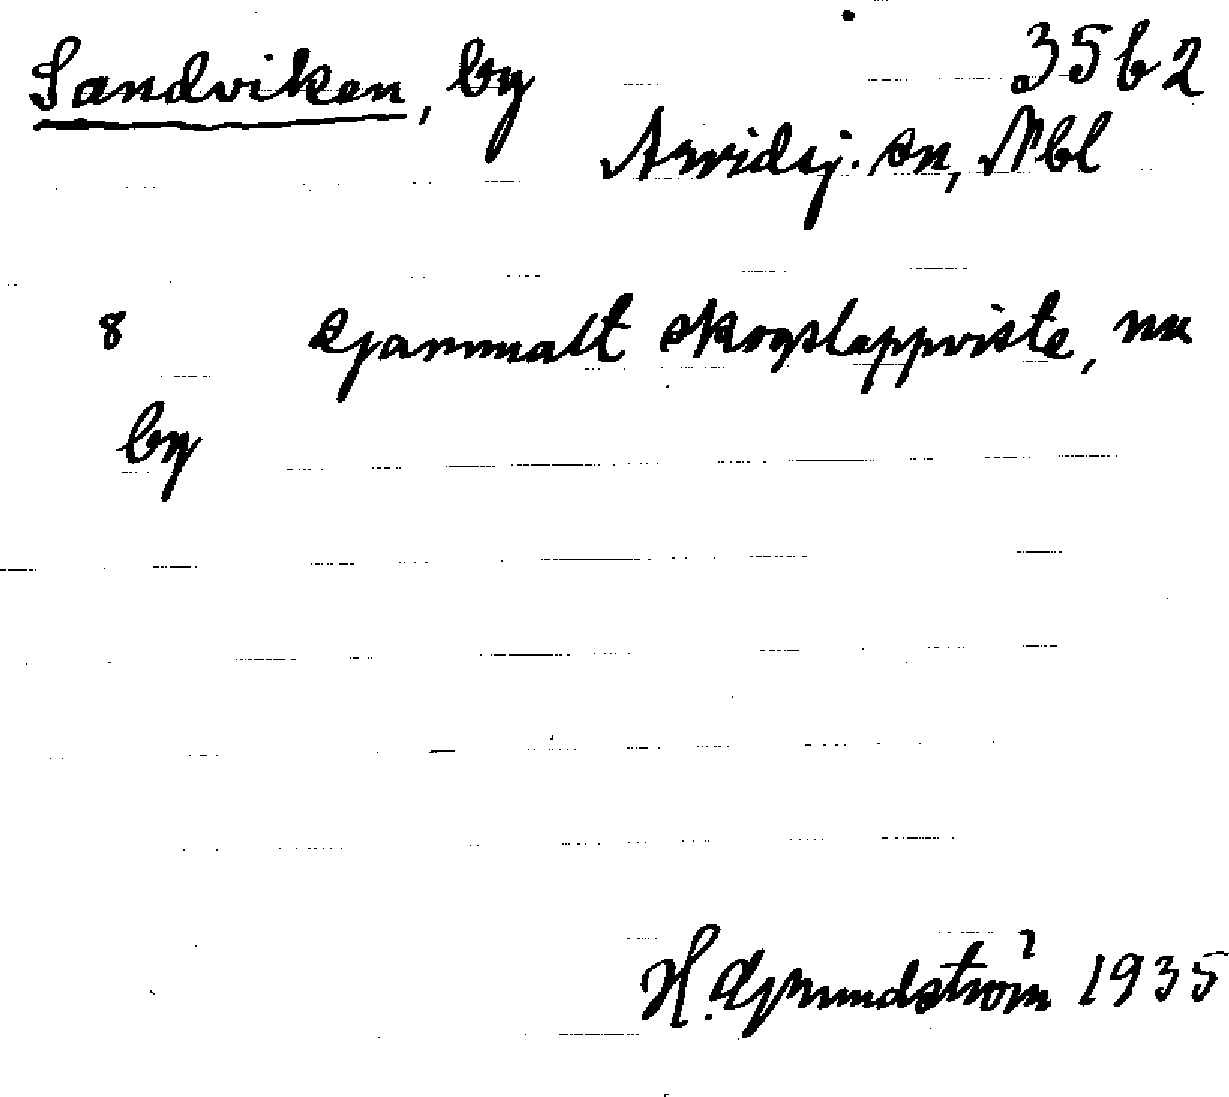 Sandviken, by 35b2
Arvidsj. sn, Nbl
8 Gammalt skogslappviste, nu
by
H. Grundström 1935